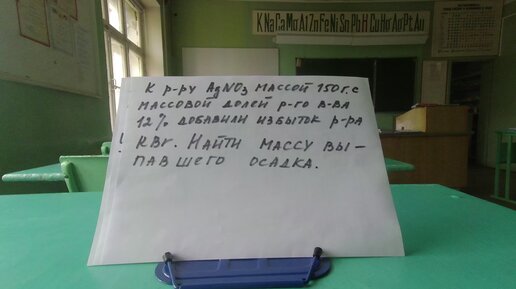 K Na Ca Mg Al Zn Fe Ni Sn Pb H Cu Hg Ag Pt Au
К р-ру AgNO3 массой 150г. с
массовой долей р-го в-ва
12% добавили избыток р-ра
KBr. Найти массу вы-
павшего осадка.